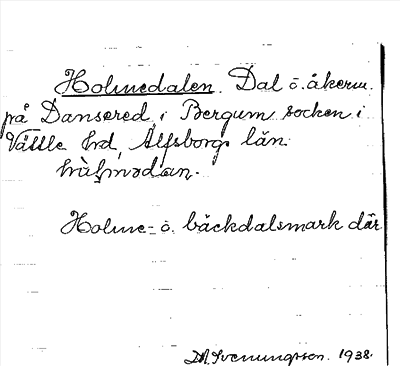 Holmedalen. Dal o. åkerm.
på Dansered i Bergum socken i
Vättle hd, Älfsborgs län.
Holme- o. bäckdalsmark där
D.A. Svenungsson. 1938.